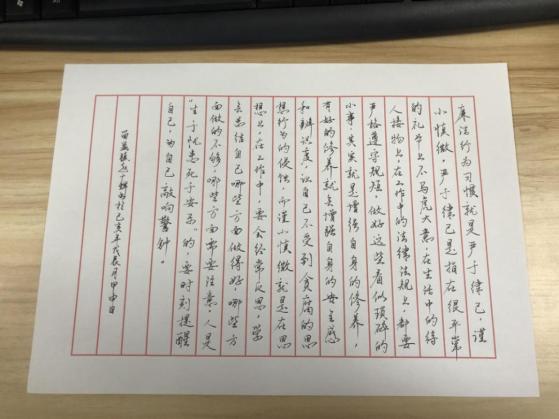 廉洁行为习惯就是严于律己，谨
小慎微，严于律己是指在很平常
的礼节上不马虎大意，在生活中的待
人接物上，在工作中的法律法规上，都要
严格遵守规矩，做好这些看似琐碎的
小事，其实就是增强自身的修养，
有好的修养就会增强自身的安全感
和辨识度，让自己不受到贪腐的思
想行为的侵蚀，而谨小慎微就是在思
想上，在工作中，要会经常反思，常
去总结自己哪些方面做得好，哪些方
面做的不够，哪些方面需要注意，人是
"生于忧患死于安乐"的，要时刻提醒
自己，为自己敲响警钟。
于己亥年
月甲申日